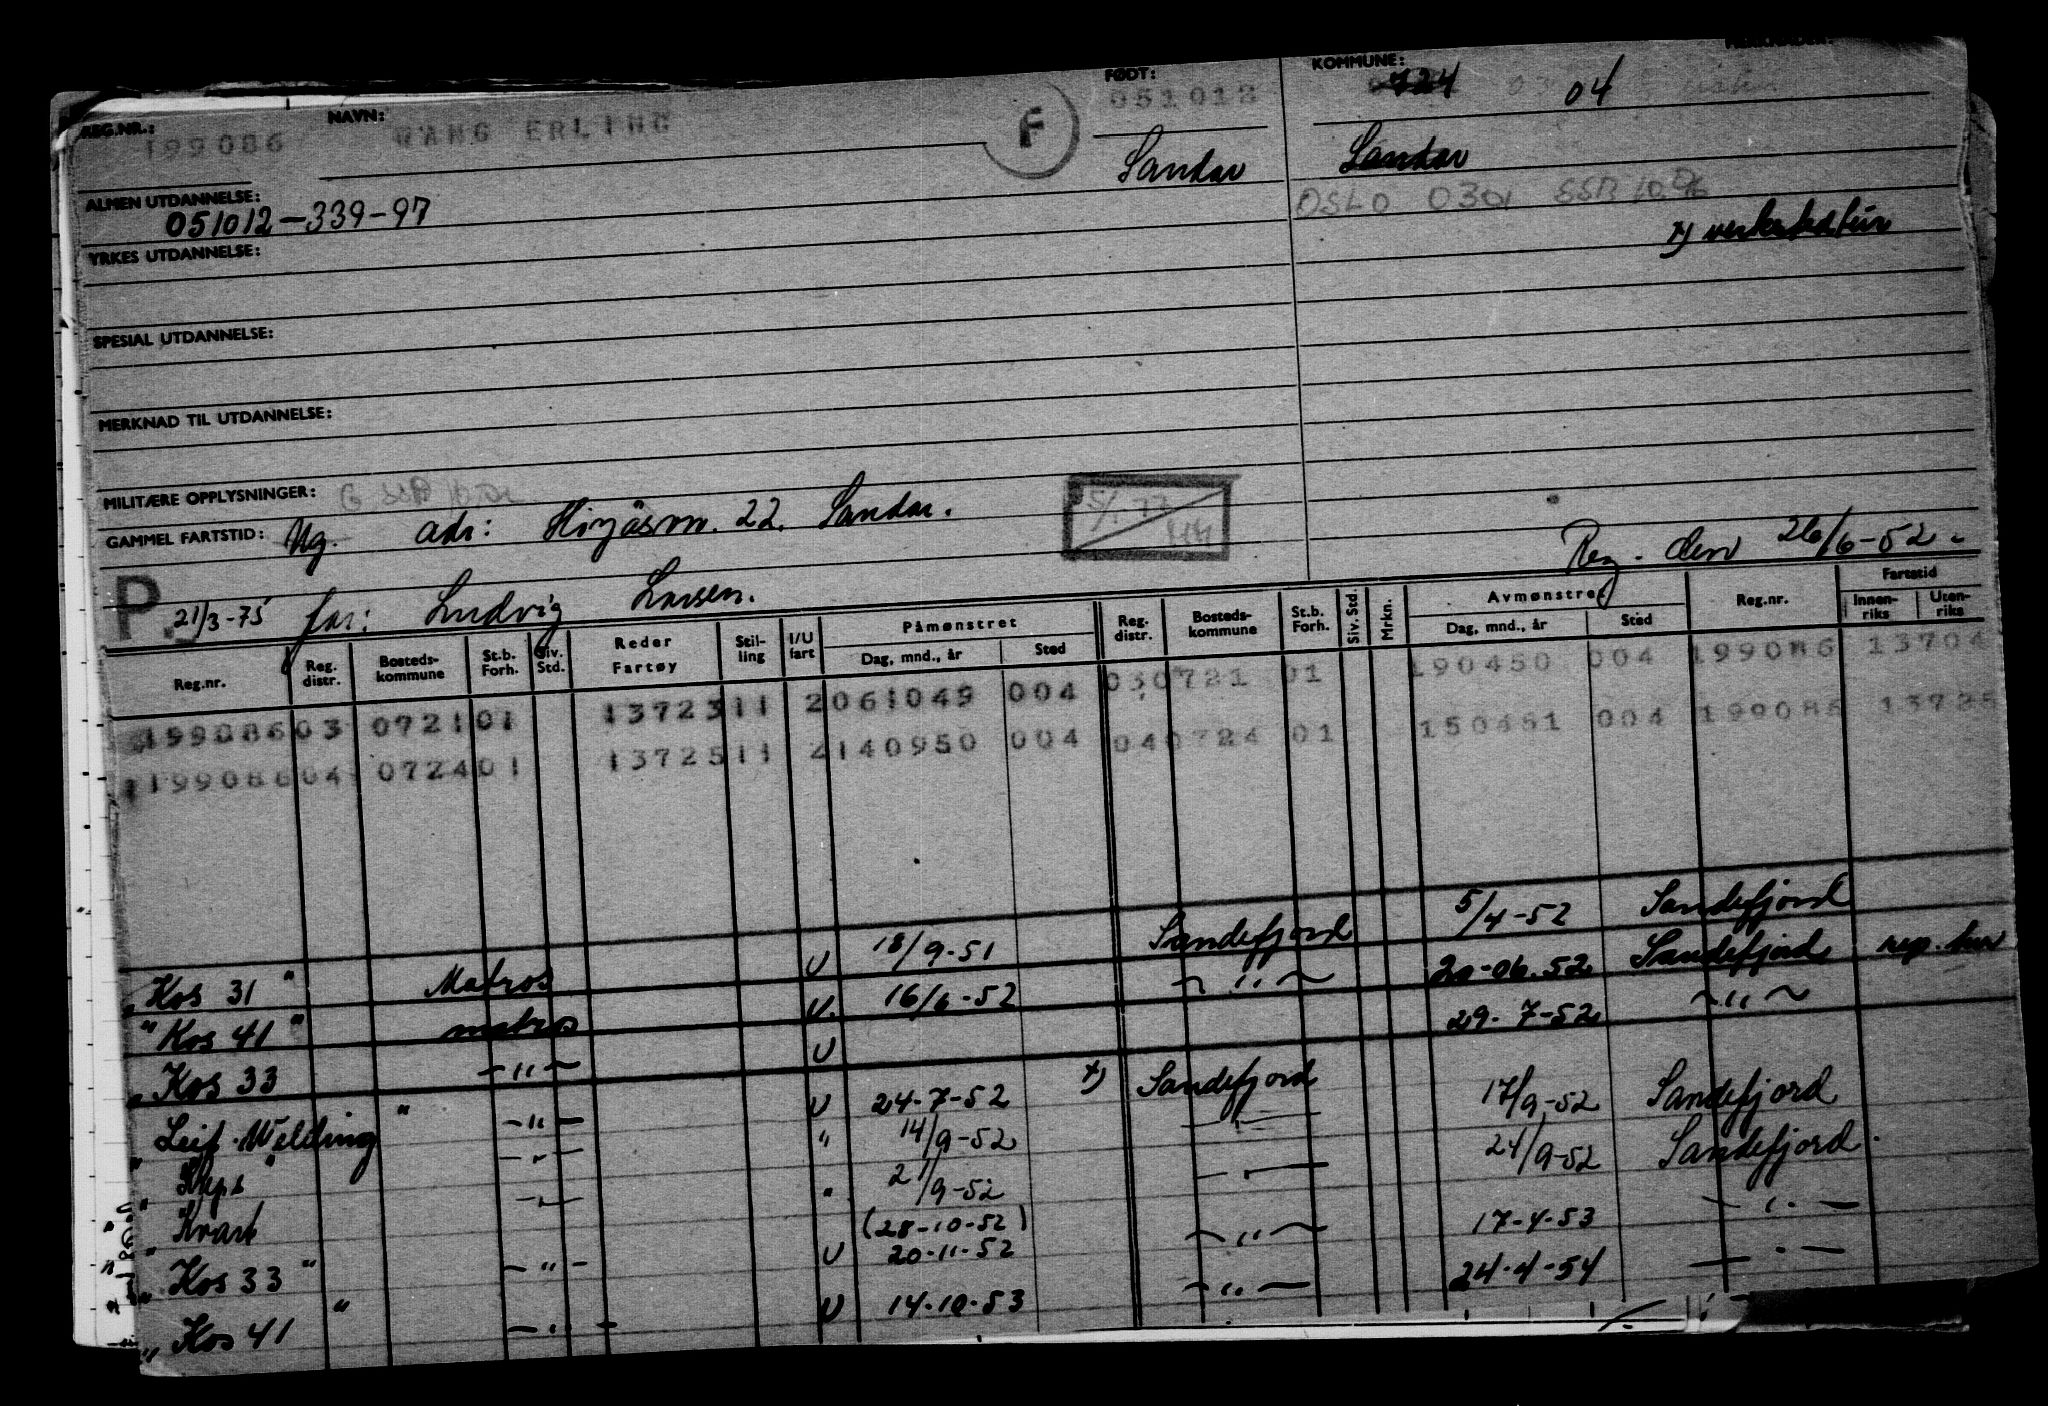 REG.NR.: 199086 NAVN: WANG ERLING F FØDT: 051012 KOMMUNE: 724 04
Sandar Sandar
ALMEN UTDANNELSE: 051012-339-97 OSLO 0301 SSB
x)
YRKES UTDANNELSE:
SPESIAL UTDANNELSE:
MERKNAD TIL UTDANNELSE:
MILITÆRE OPPLYSNINGER:
GAMMEL FARTSTID: Ug. adr: 22. Sandar.
Reg. den 26/6-52.
P. 21/3-75 far: Ludvig Larsen.
Reg.nr. Reg. distr. Bosteds-kommune St.b. Forh. Siv. Std. Reder Fartøy Stil-ling I/U fart Påmønstret Dag, mnd., år Sted Reg. distr. Bosteds-kommune St.b. Forh. Siv. Std. Mrkn. Avmønstret Dag, mnd., år Sted Reg.nr. Fartstid Innen-riks Uten-riks
199086 03 0721 01 13723 11 2 061049 004 03 0721 01 190450 004 199086 13704
199086 04 0724 01 13725 11 2 140950 004 04 0724 01 150451 004 199086 13725
"Kos 31" Matros U 18/9-51 Sandefjord 5/4-52 Sandefjord
"Kos 41" matros U. 16/6-52 -"- 20-06.52 Sandefjord rep. her
"Kos 33 -"- U 29-7-52 -"-
"Leif Welding" -"- U 24-7-52 x) Sandefjord 17/9-52 Sandefjord
" -"- " 14/9-52 -"- 24/9-52 Sandefjord.
"Kvart -"- " 21/9-52 -"-
(28-10-52)
"Kos 33" -"- U 20-11-52 -"- 17-4-53 -"-
"Kos 41" -"- U 14-10-53 -"- 24-4-54 -"-